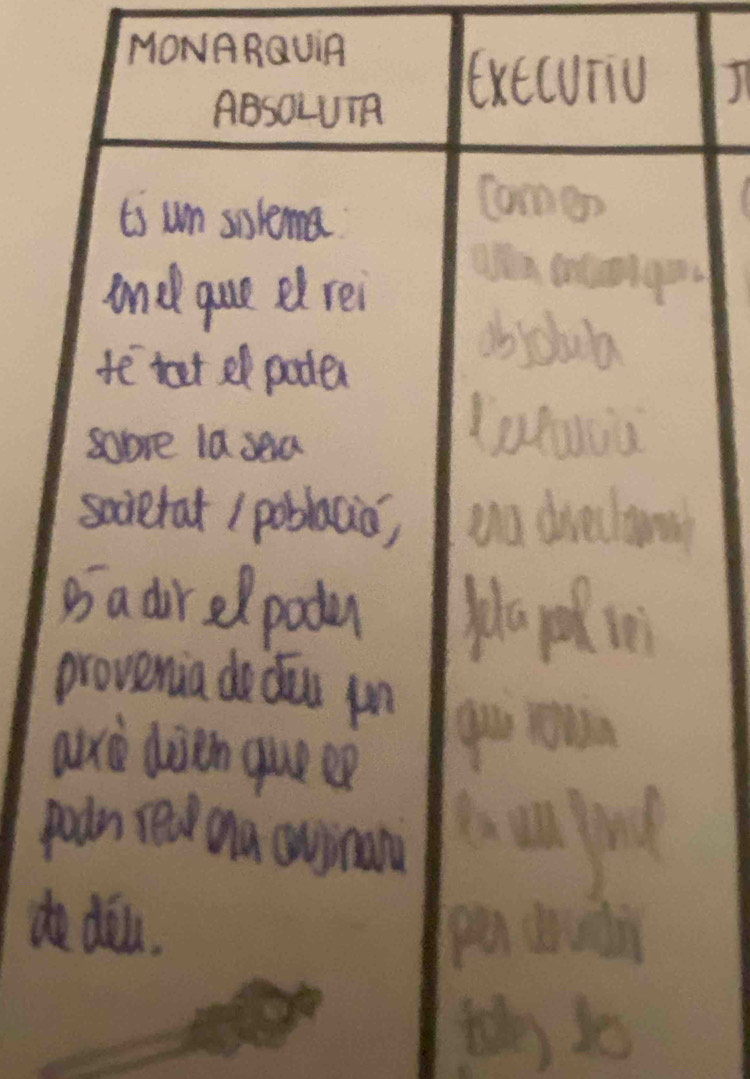 MONARQUIA
ABSOLUTA
És un sistema
en el que el rei
té tot el poder
sobre la seva
societat / població,
és a dir el poder
provenia de déu per
això deien que el
poder real era originari
de déu.
EXECUTIU
Com en
una monarquia
absoluta
era directament
feta pel rei
qui
per